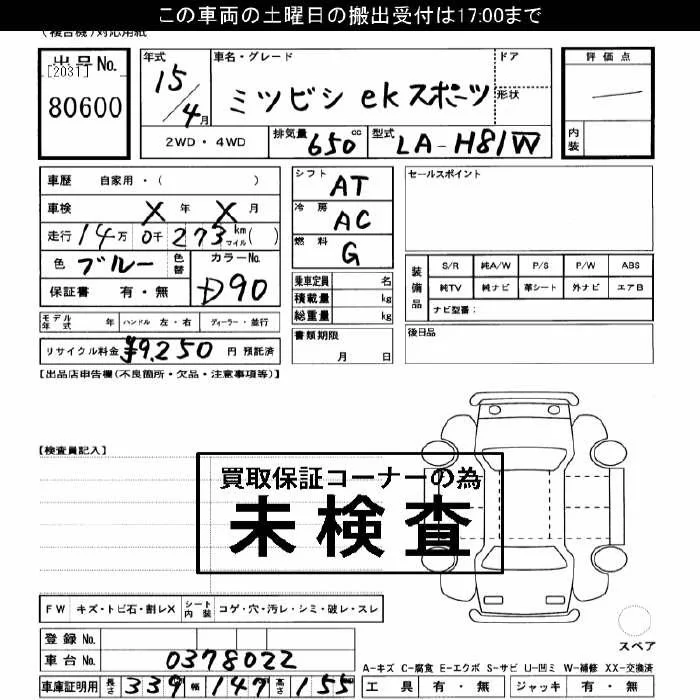 この車両の土曜日の搬出受付は17:00まで
(複合機)対応用紙
出品No. [2031] 80600
年式 15/4月
車名・グレード ミツビシ ekスポーツ
ドア
形状
2WD・4WD 排気量 650cc 型式 LA-H81W
評価点
内装
車歴 自家用・( )
車検 X年 X月
走行 14万 0千 273 km マイル( )
色 ブルー 色替 カラーNo. D90
保証書 有・無
モデル年式 年 ハンドル 左・右 ディーラー・並行
リサイクル料金 ¥9,250 円 預託済
シフト AT
冷房 AC
燃料 G
乗車定員 名
積載量 kg
総重量 kg
書類期限 月 日
セールスポイント
装備品 S/R 純A/W P/S P/W ABS
純TV 純ナビ 革シート 外ナビ エアB
ナビ型番:
後日品
【出品店申告欄(不良箇所・欠品・注意事項等)】
【検査員記入】
買取保証コーナーの為
未検査
FW キズ・トビ石・割レX シート内装 コゲ・穴・汚レ・シミ・破レ・スレ
登録No.
車台No. 0378022
車庫証明用 長さ 339 幅 147 高さ 155
スペア
A-キズ C-腐食 E-エクボ S-サビ U-凹ミ W-補修 XX-交換済
工具 有・無 ジャッキ 有・無